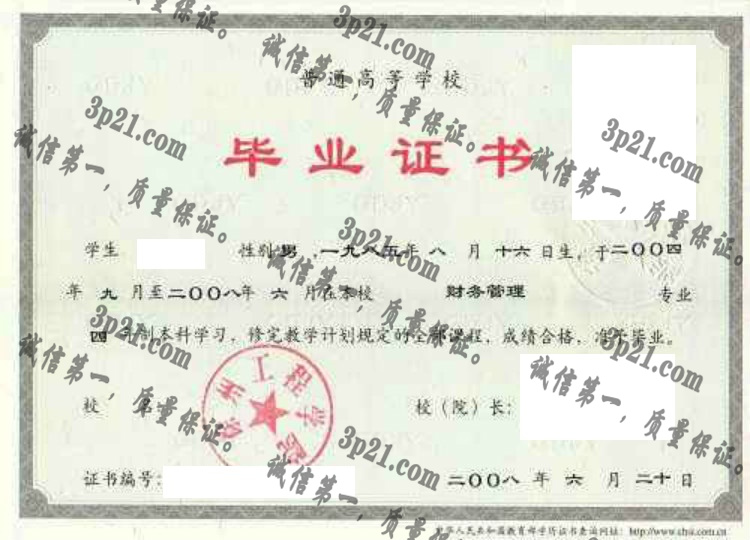 普通高等学校
毕业证书
学生 性别 男 ,一九八五年 八 月 十六 日生, 于二〇〇四
年 九 月至二〇〇八年 六 月在本校 财务管理 专业
四 年制本科学习, 修完教学计划规定的全部课程, 成绩合格, 准予毕业。
校 名:
校(院)长:
工程学院
证书编号:
二〇〇八 年 六 月 二十日
中华人民共和国教育部学历证书查询网址: http://www.chsi.com.cn
3p21.com
诚信第一,质量保证。
3p21.com
诚信第一,质量保证。
3p21.com
诚信第一,质量保证。
3p21.com
诚信第一,质量保证。
3p21.com
诚信第一,质量保证。
3p21.com
诚信第一,质量保证。
3p21.com
诚信第一,质量保证。
质量保证。